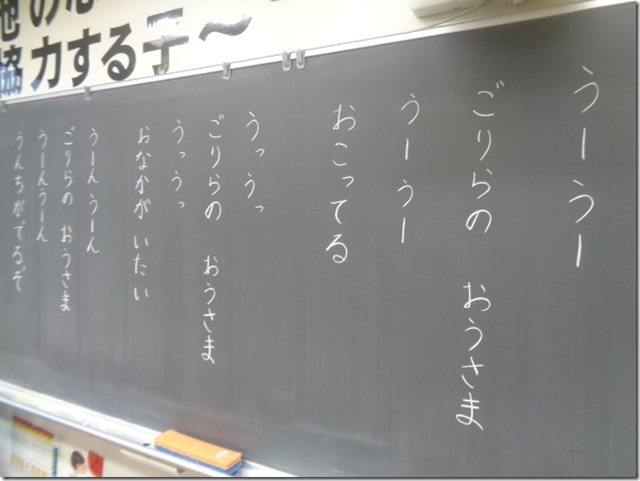 協力する子〜
うーうー
ごりらの　おうさま
うーうー
おこってる
うっうっ
ごりらの　おうさま
うっうっ
おなかが　いたい
うーん うーん
ごりらの　おうさま
うーんうーん
うんちがでるぞ